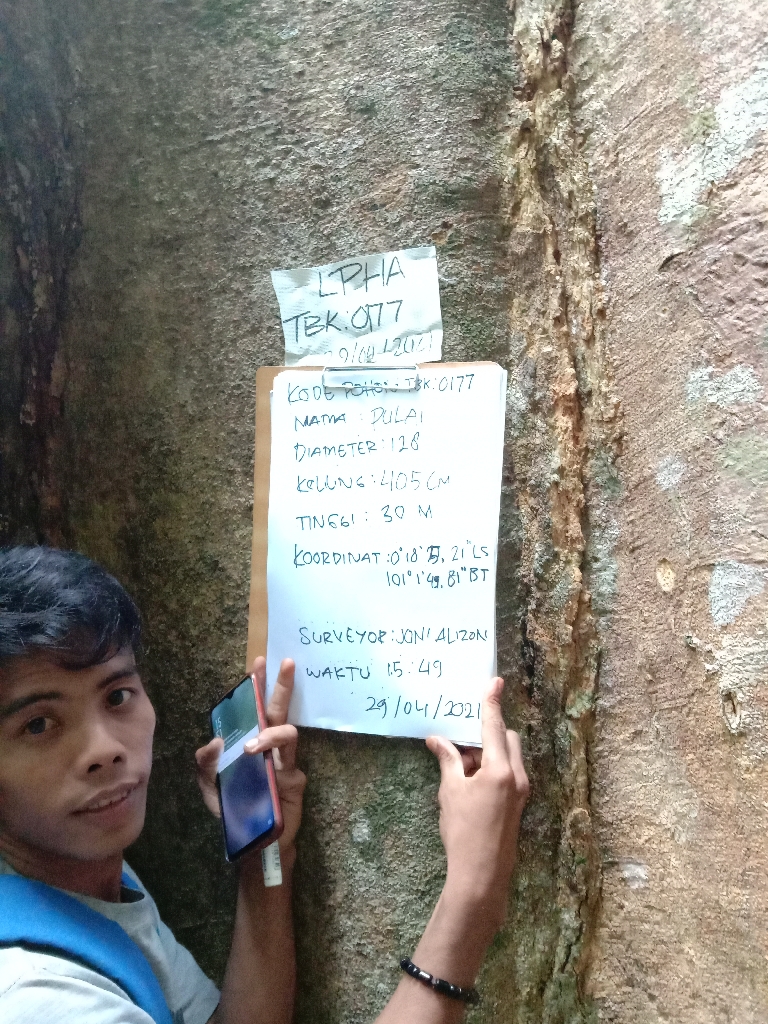 LPHA
TBK:0177
29/04-2021
KODE POHON TBK:0177
NAMA : PULAI
DIAMETER:128
KELLING:405 CM
TINGGI: 30 M
KOORDINAT:0°18' , 21" LS
101°1'49, 81" BT
SURVEYOR:JONI ALIZON
WAKTU 15:49
29/04/2021